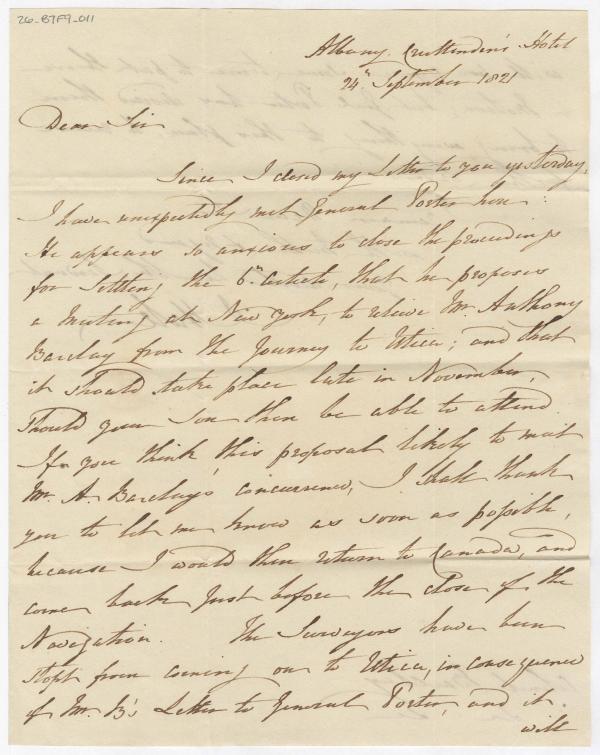 26-B7F9-011
Albany, Cruttenden's Hotel
24th September 1821
Dear Sir
Since I closed my Letter to you yesterday,
I have unexpectedly met General Porter here:
He appears so anxious to close the proceedings
for Settling the 6th Article, that he proposes
a Meeting at New York, to relieve Mr. Anthony
Barclay from the Journey to Utica; and that
it should take place late in November,
should your Son then be able to attend.
If you think this proposal likely to meet
Mr. A. Barclay's concurrence, I shall thank
you to let me know as soon as possible,
because I would then return to Canada, and
come back just before the close of the
Navigation. The Surveyors have been
stopt from coming on to Utica, in consequence
of Mr. B's Letter to General Porter, and it
will